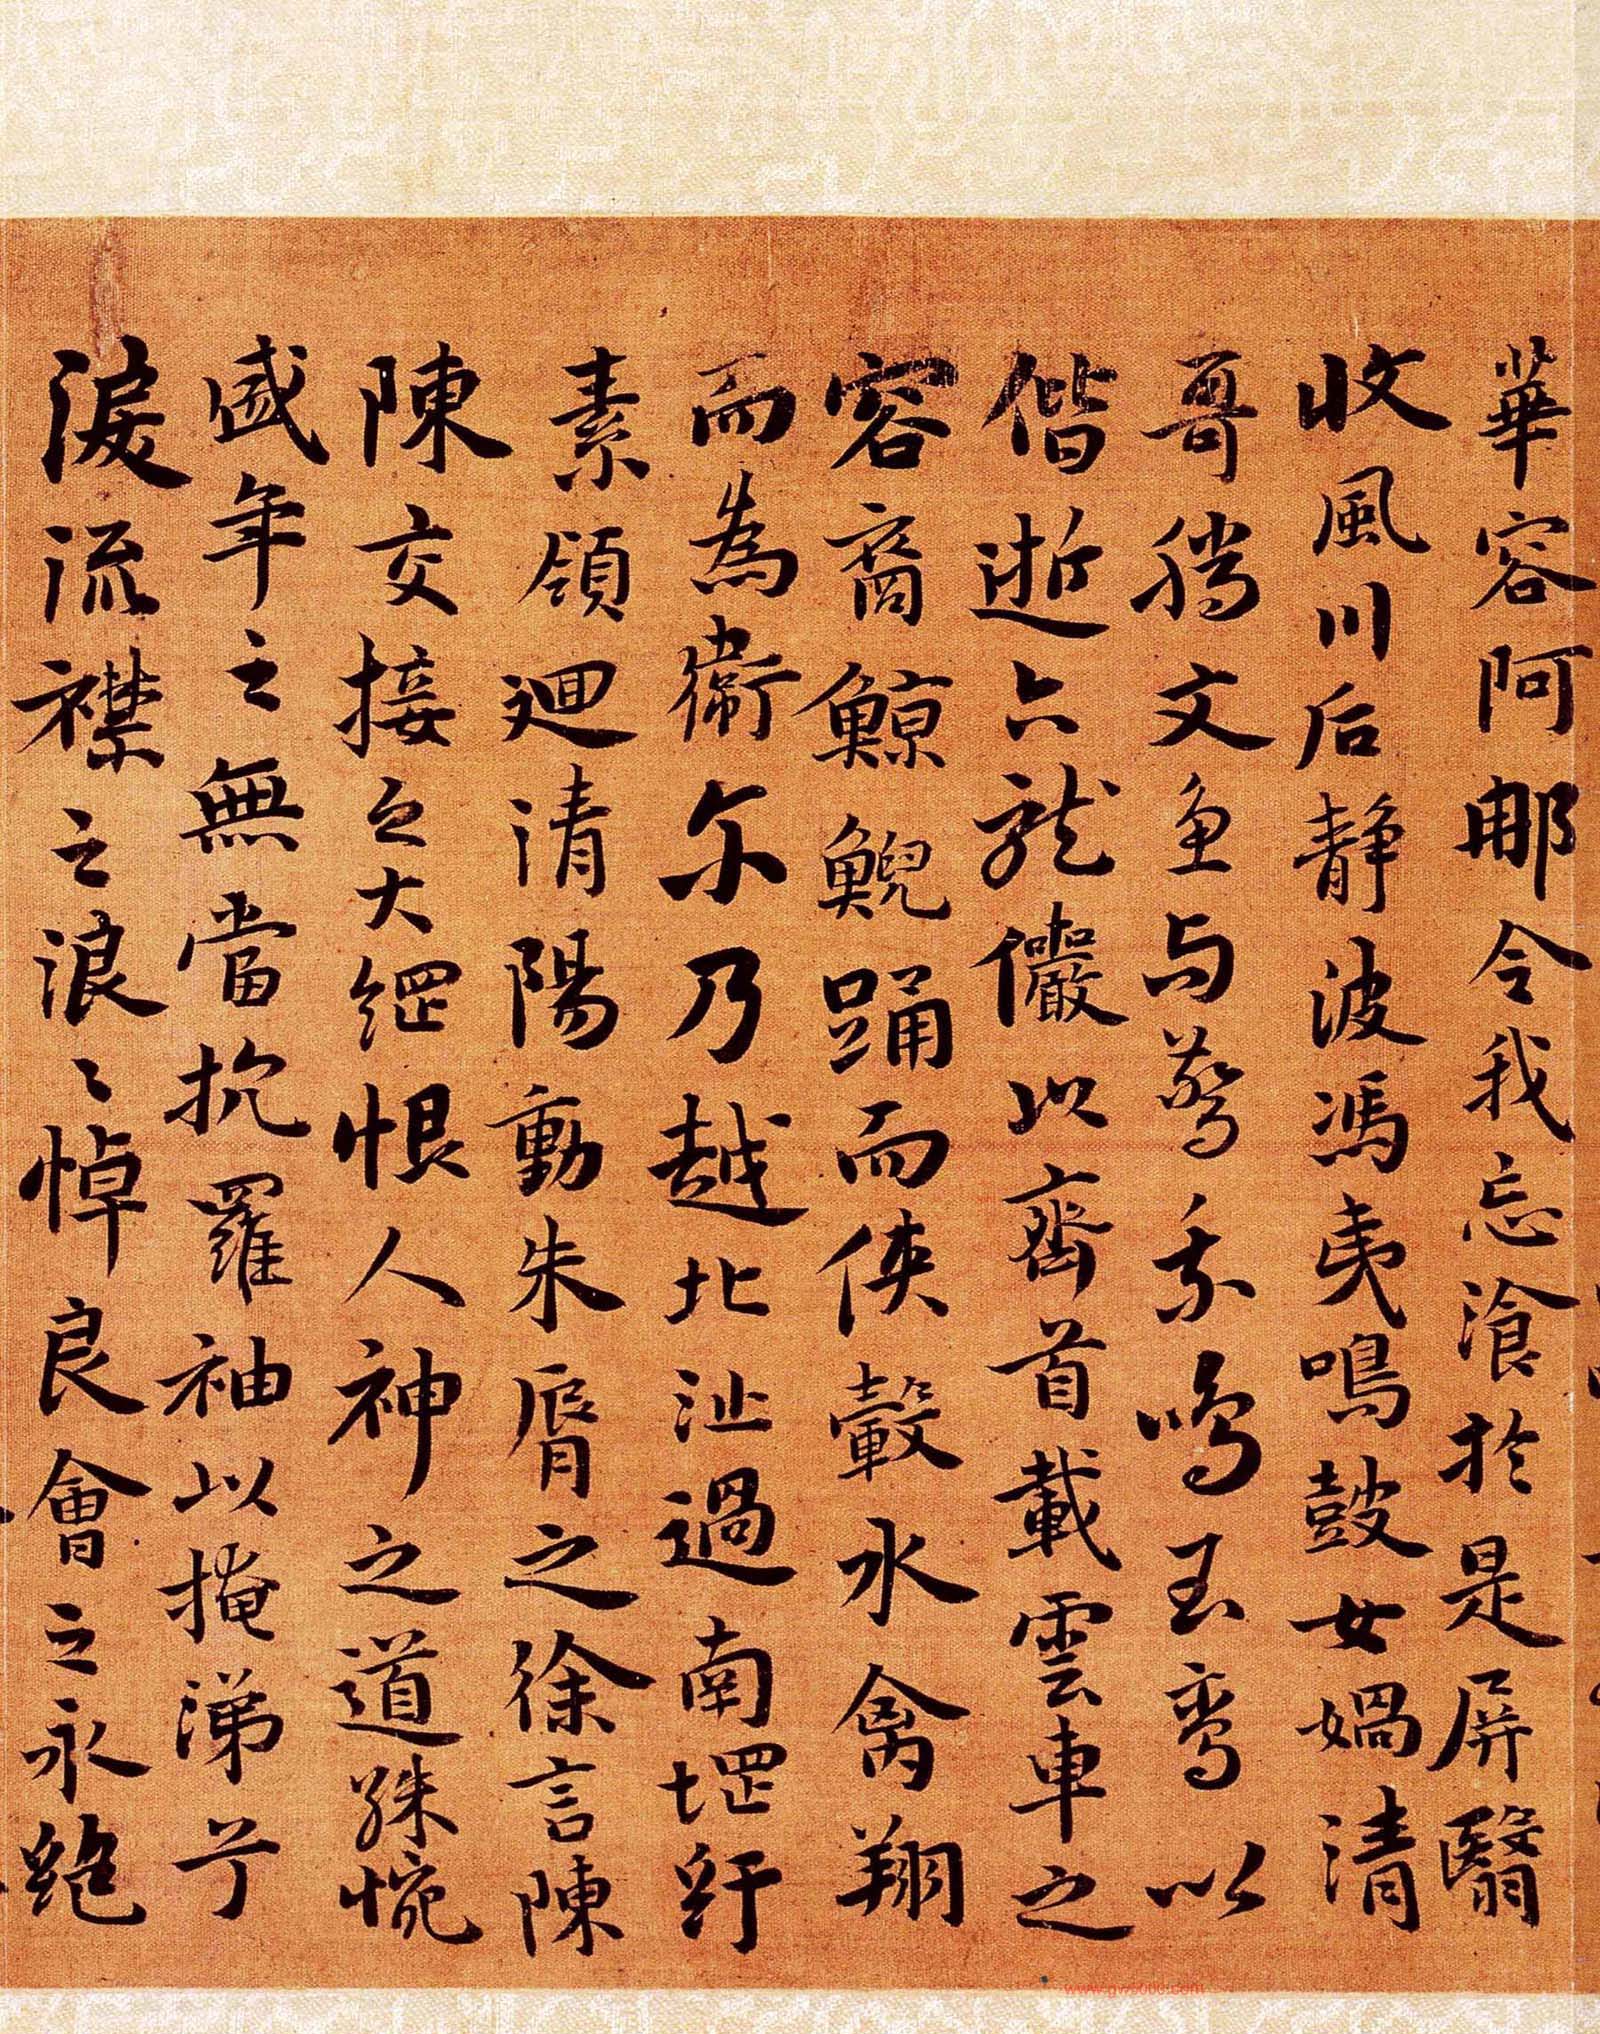 華容阿那令我忘飡於是屏翳
收風川后静波馮夷鳴鼓女媧清
哥騰文魚与警乘鳴玉鸞以
偕逝六龍儼以齊首載雲車之
容裔鯨鯢踊而俠轂水禽翔
而為衛尔乃越北沚過南堽紆
素領廻清陽動朱脣之徐言陳
陳交接之大綱恨人神之道殊惋
盛年之無當抗羅袖以掩涕兮
淚流襟之浪〻悼良會之永絕